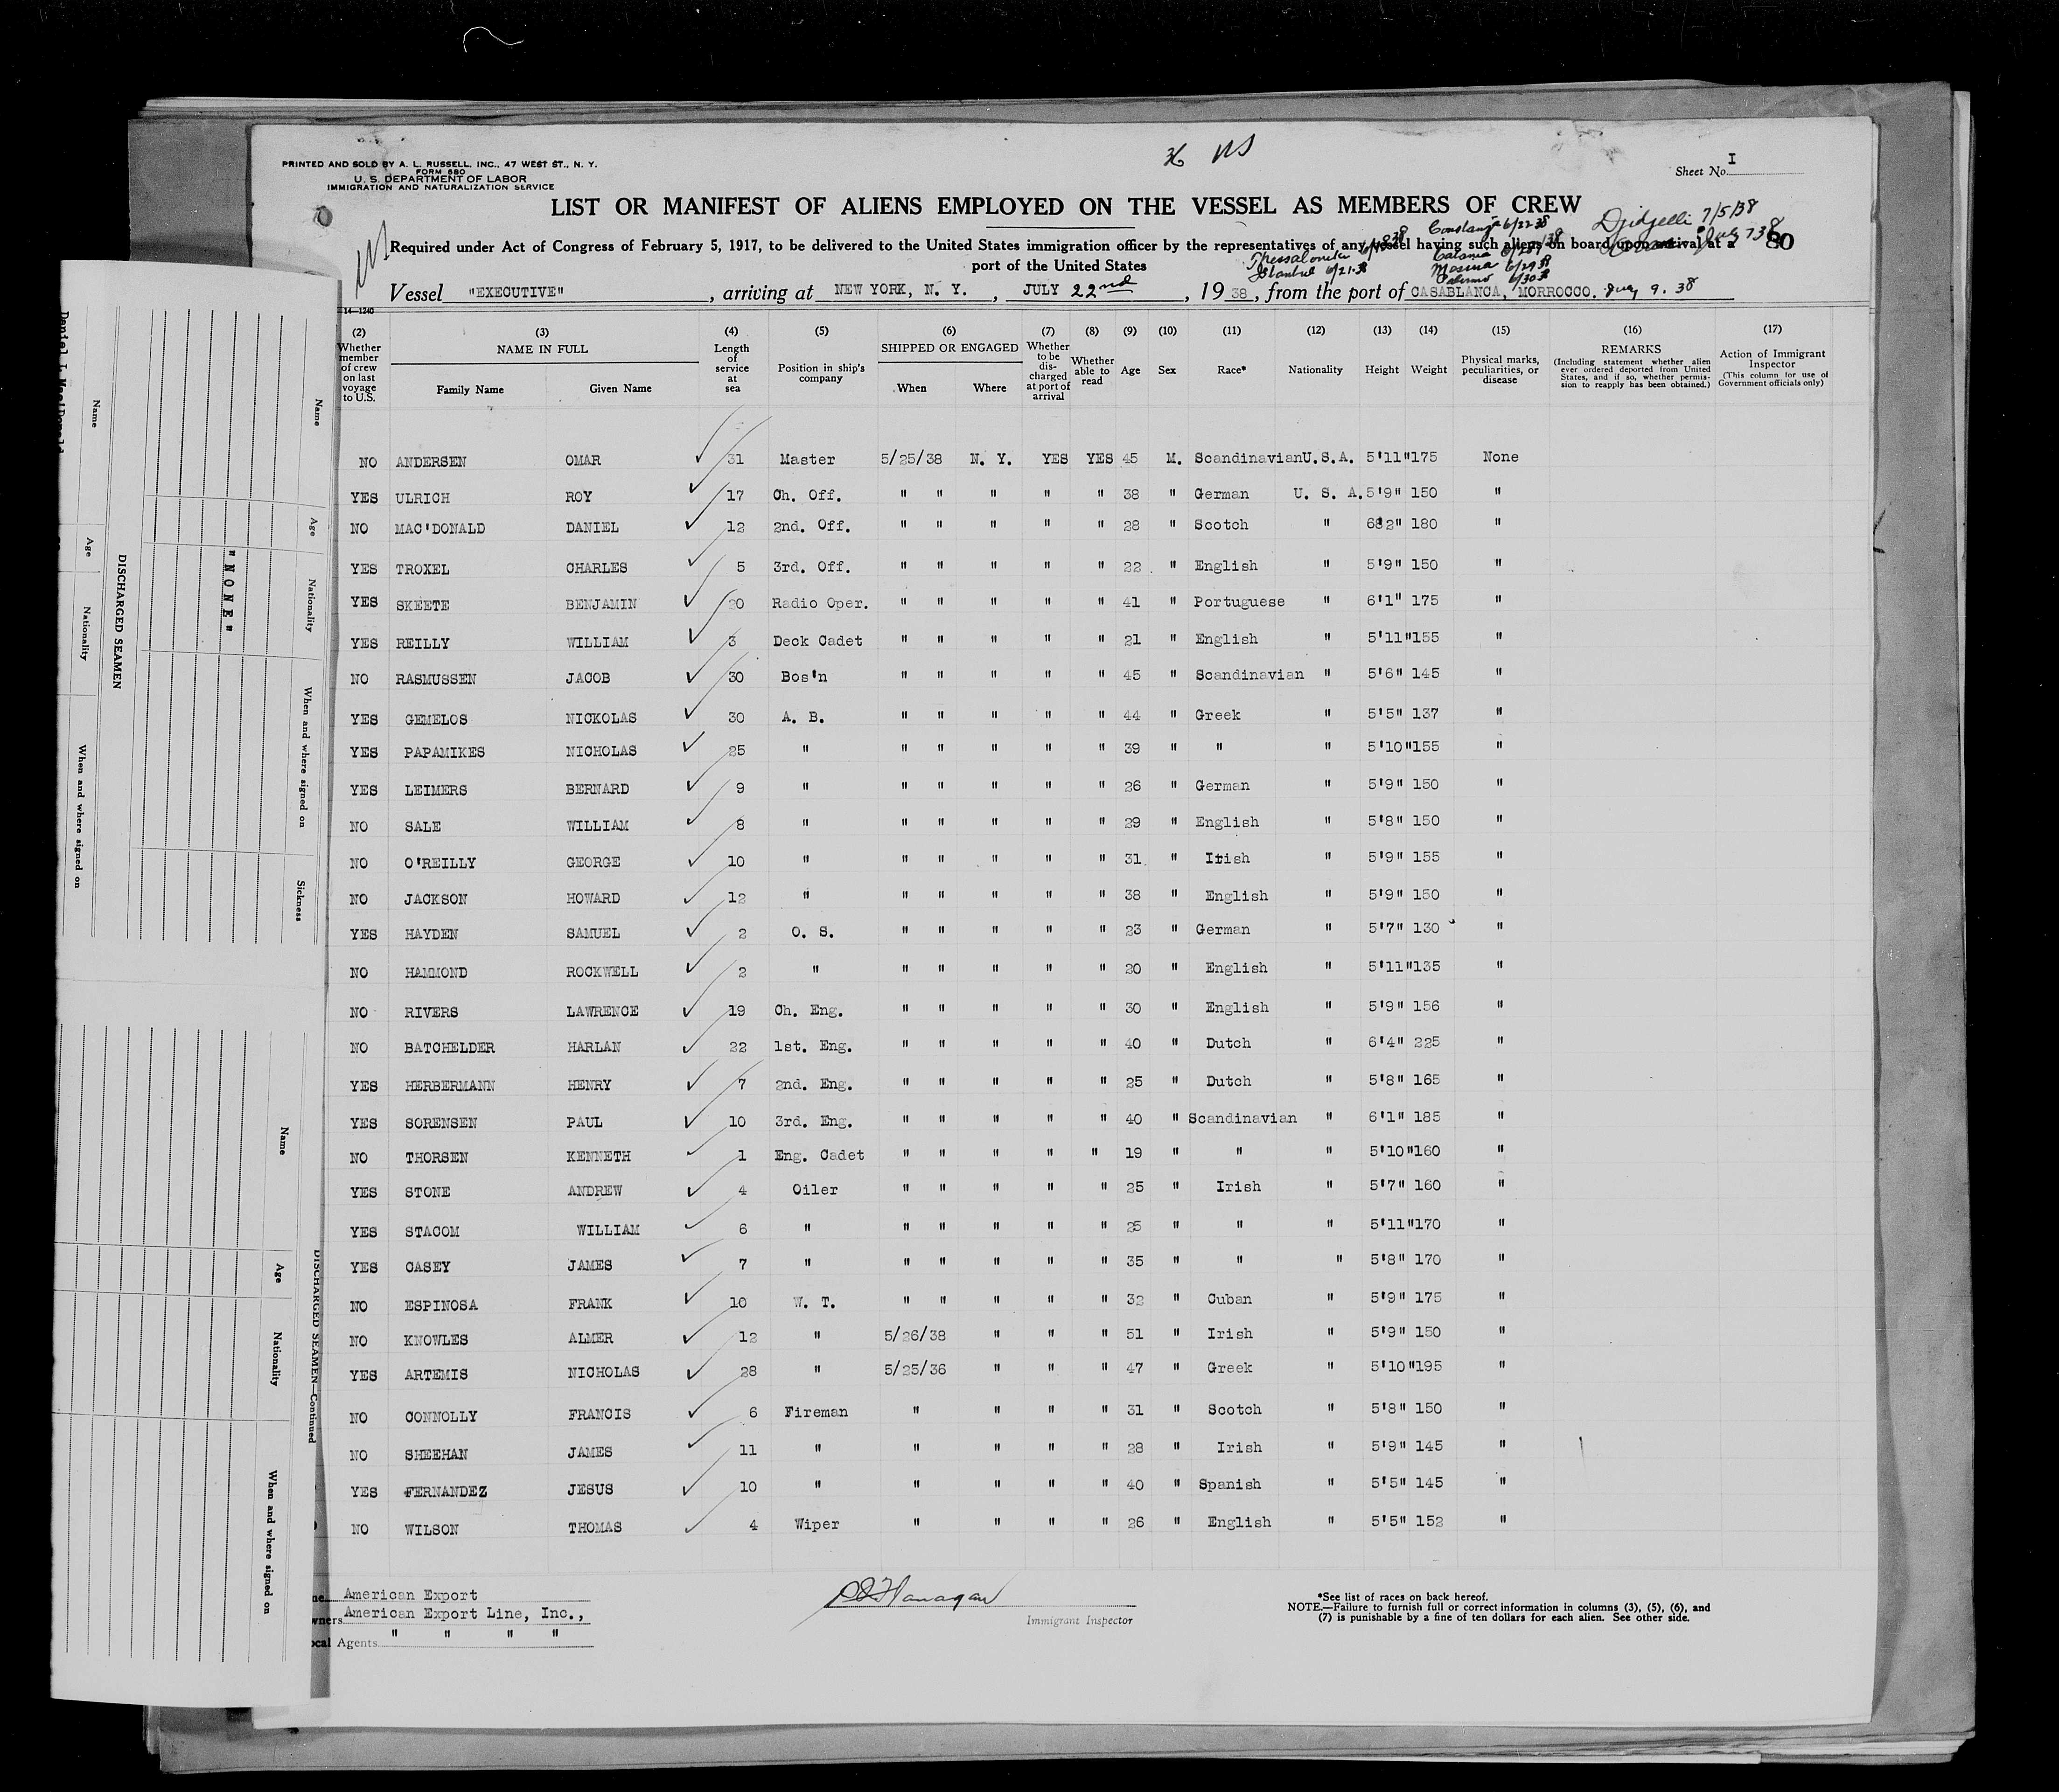 PRINTED AND SOLD BY A. L. RUSSELL, INC., 47 WEST ST., N. Y.
FORM 680
U. S. DEPARTMENT OF LABOR
IMMIGRATION AND NATURALIZATION SERVICE
36
Sheet No. I
LIST OR MANIFEST OF ALIENS EMPLOYED ON THE VESSEL AS MEMBERS OF CREW
Required under Act of Congress of February 5, 1917, to be delivered to the United States immigration officer by the representatives of any vessel having such aliens on board upon arrival at a
port of the United States
80
Constanza 6/22 38
Djidjelli 7/5/38
Thessaloniki
Istanbul 6/21.38
Catania
Messina 6/29 38
Palermo 6/30 38
Vessel "EXECUTIVE", arriving at NEW YORK, N. Y., JULY 22nd, 1938, from the port of CASABLANCA, MORROCO. July 9. 38
14—1240
(2) (3) (4) (5) (6) (7) (8) (9) (10) (11) (12) (13) (14) (15) (16) (17)
Whether member of crew on last voyage to U.S.
NAME IN FULL
Family Name Given Name
Length of service at sea
Position in ship's company
SHIPPED OR ENGAGED
When Where
Whether to be discharged at port of arrival
Whether able to read
Age Sex Race* Nationality Height Weight
Physical marks, peculiarities, or disease
REMARKS
(Including statement whether alien ever ordered deported from United States, and if so, whether permission to reapply has been obtained.)
Action of Immigrant Inspector
(This column for use of Government officials only)
NO ANDERSEN OMAR 31 Master 5/25/38 N. Y. YES YES 45 M. Scandinavian U.S.A. 5'11" 175 None
YES ULRICH ROY 17 Ch. Off. " " " " " 38 " German U. S. A. 5'9" 150 "
NO MAC'DONALD DANIEL 12 2nd. Off. " " " " " 28 " Scotch " 6'2" 180 "
YES TROXEL CHARLES 5 3rd. Off. " " " " " 22 " English " 5'9" 150 "
YES SKEETE BENJAMIN 20 Radio Oper. " " " " " 41 " Portuguese " 6'1" 175 "
YES REILLY WILLIAM 3 Deck Cadet " " " " " 21 " English " 5'11" 155 "
NO RASMUSSEN JACOB 30 Bos'n " " " " " 45 " Scandinavian " 5'6" 145 "
YES GEMELOS NICKOLAS 30 A. B. " " " " " 44 " Greek " 5'5" 137 "
YES PAPAMIKES NICHOLAS 25 " " " " " " 39 " " " 5'10" 155 "
YES LEIMERS BERNARD 9 " " " " " " 26 " German " 5'9" 150 "
NO SALE WILLIAM 8 " " " " " " 29 " English " 5'8" 150 "
NO O'REILLY GEORGE 10 " " " " " " 31 " Irish " 5'9" 155 "
NO JACKSON HOWARD 12 " " " " " " 38 " English " 5'9" 150 "
YES HAYDEN SAMUEL 2 O. S. " " " " " 23 " German " 5'7" 130 "
NO HAMMOND ROCKWELL 2 " " " " " " 20 " English " 5'11" 135 "
NO RIVERS LAWRENCE 19 Ch. Eng. " " " " " 30 " English " 5'9" 156 "
NO BATCHELDER HARLAN 22 1st. Eng. " " " " " 40 " Dutch " 6'4" 225 "
YES HERBERMANN HENRY 7 2nd. Eng. " " " " " 25 " Dutch " 5'8" 165 "
YES SORENSEN PAUL 10 3rd. Eng. " " " " " 40 " Scandinavian " 6'1" 185 "
NO THORSEN KENNETH 1 Eng. Cadet " " " " " 19 " " " 5'10" 160 "
YES STONE ANDREW 4 Oiler " " " " " 25 " Irish " 5'7" 160 "
YES STACOM WILLIAM 6 " " " " " " 25 " " " 5'11" 170 "
YES CASEY JAMES 7 " " " " " " 35 " " " 5'8" 170 "
NO ESPINOSA FRANK 10 W. T. " " " " " 32 " Cuban " 5'9" 175 "
NO KNOWLES ALMER 12 " 5/26/38 " " " 51 " Irish " 5'9" 150 "
YES ARTEMIS NICHOLAS 28 " 5/25/36 " " " 47 " Greek " 5'10" 195 "
NO CONNOLLY FRANCIS 6 Fireman " " " " 31 " Scotch " 5'8" 150 "
NO SHEEHAN JAMES 11 " " " " " 28 " Irish " 5'9" 145 "
YES FERNANDEZ JESUS 10 " " " " " 40 " Spanish " 5'5" 145 "
NO WILSON THOMAS 4 Wiper " " " " 26 " English " 5'5" 152 "
American Export
American Export Line, Inc.,
Agents " " " "
Flanagan
Immigrant Inspector
*See list of races on back hereof.
NOTE.—Failure to furnish full or correct information in columns (3), (5), (6), and
(7) is punishable by a fine of ten dollars for each alien. See other side.
DISCHARGED SEAMEN
Name Age Nationality When and where signed on
Name Age Nationality When and where signed on Sickness
"NONE"
DISCHARGED SEAMEN—Continued
Name Age Nationality When and where signed on